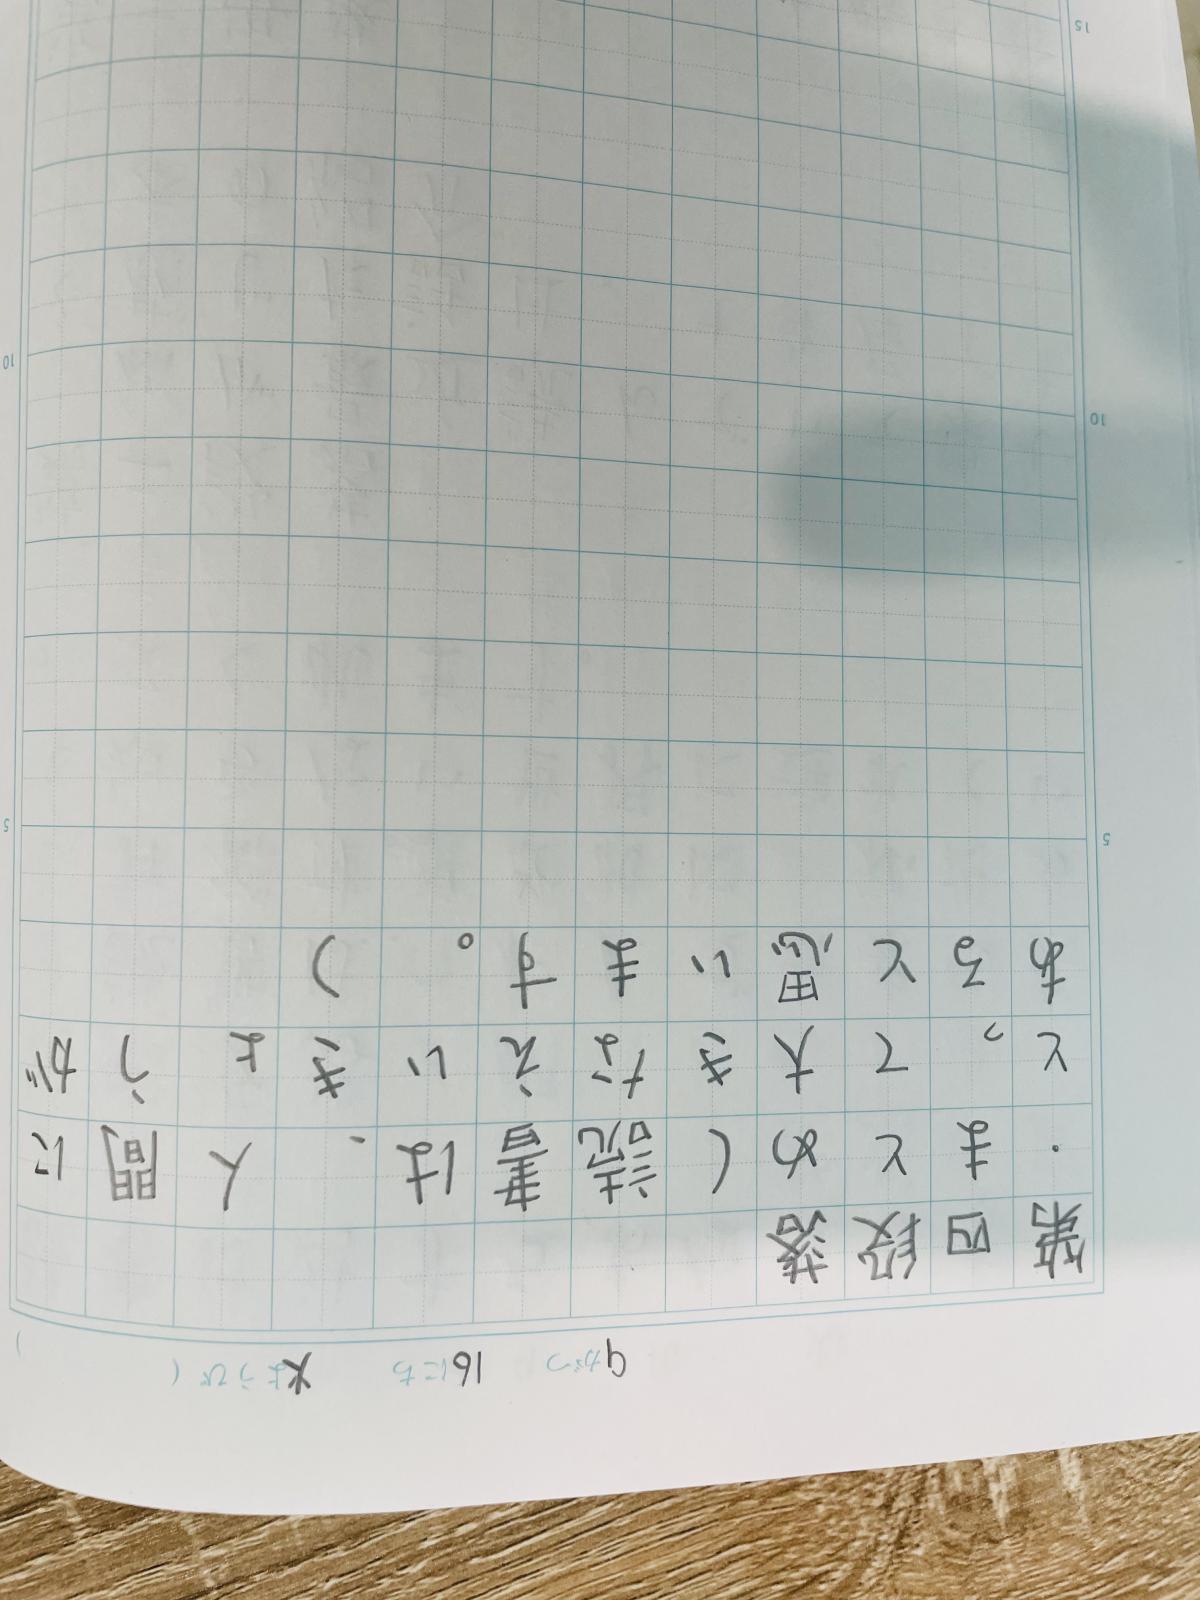 9がつ 16にち 火ようび ( )
第四段落
・まとめ(読書は、人間に
とって大きなえいきょうが
あると思います。)
5
5
10
10
15